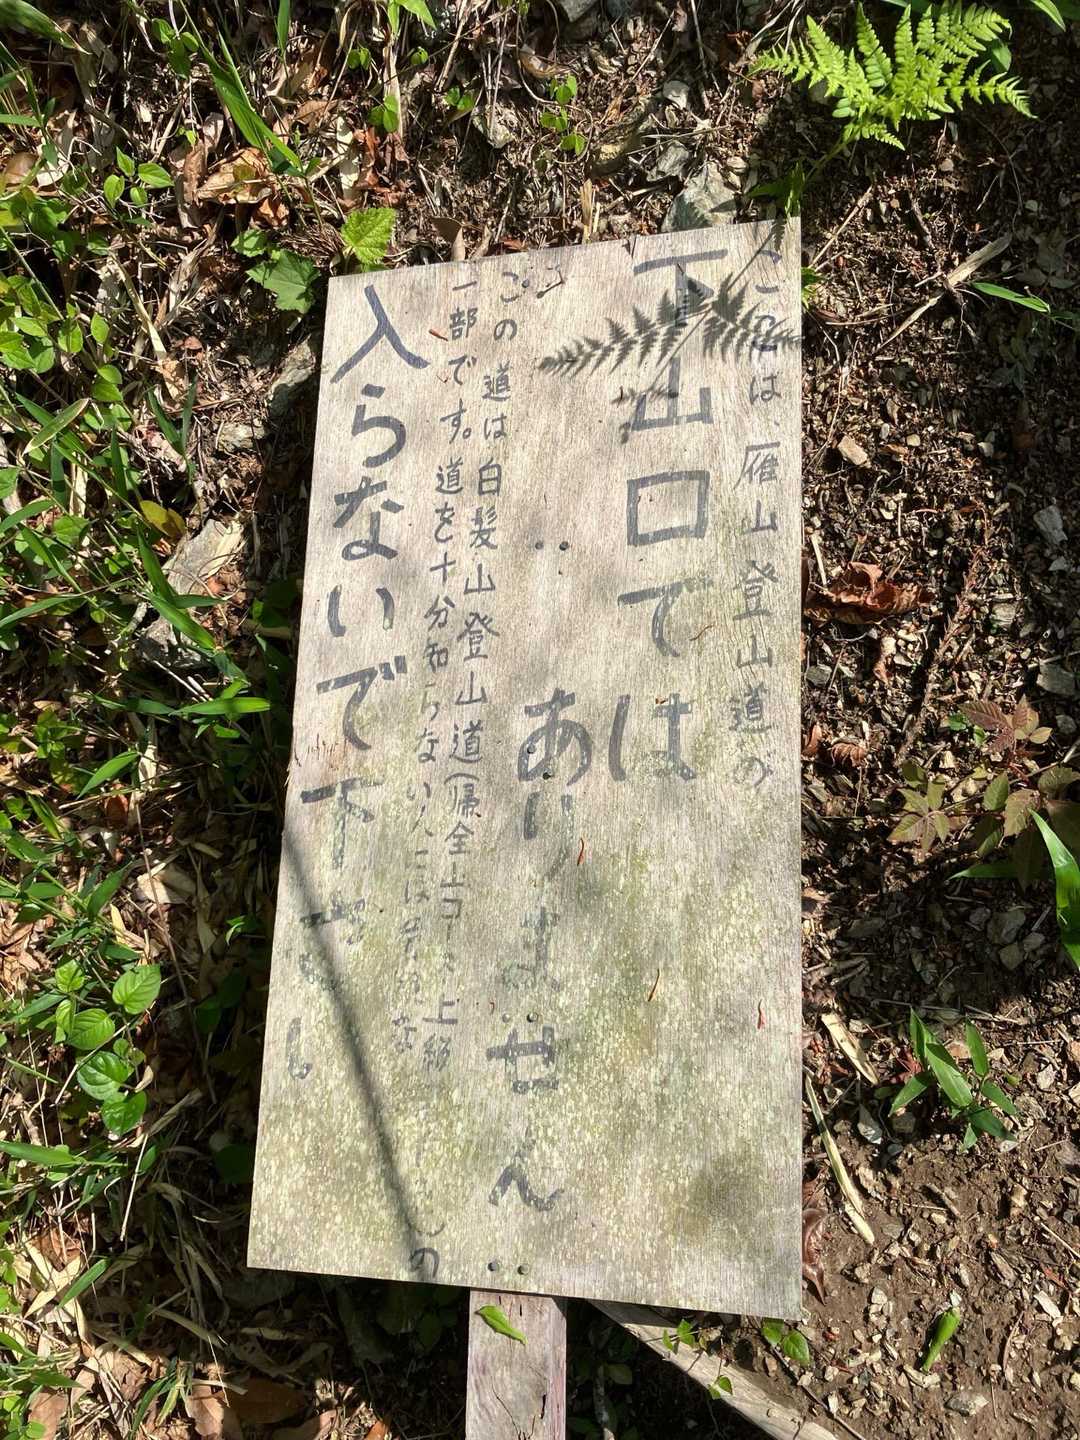 ここは、雁山登山道の
下山口では
ありません
この道は白髪山登山道(帰全山コース上級
一部です。道を十分知らない人には
入らないで下さい